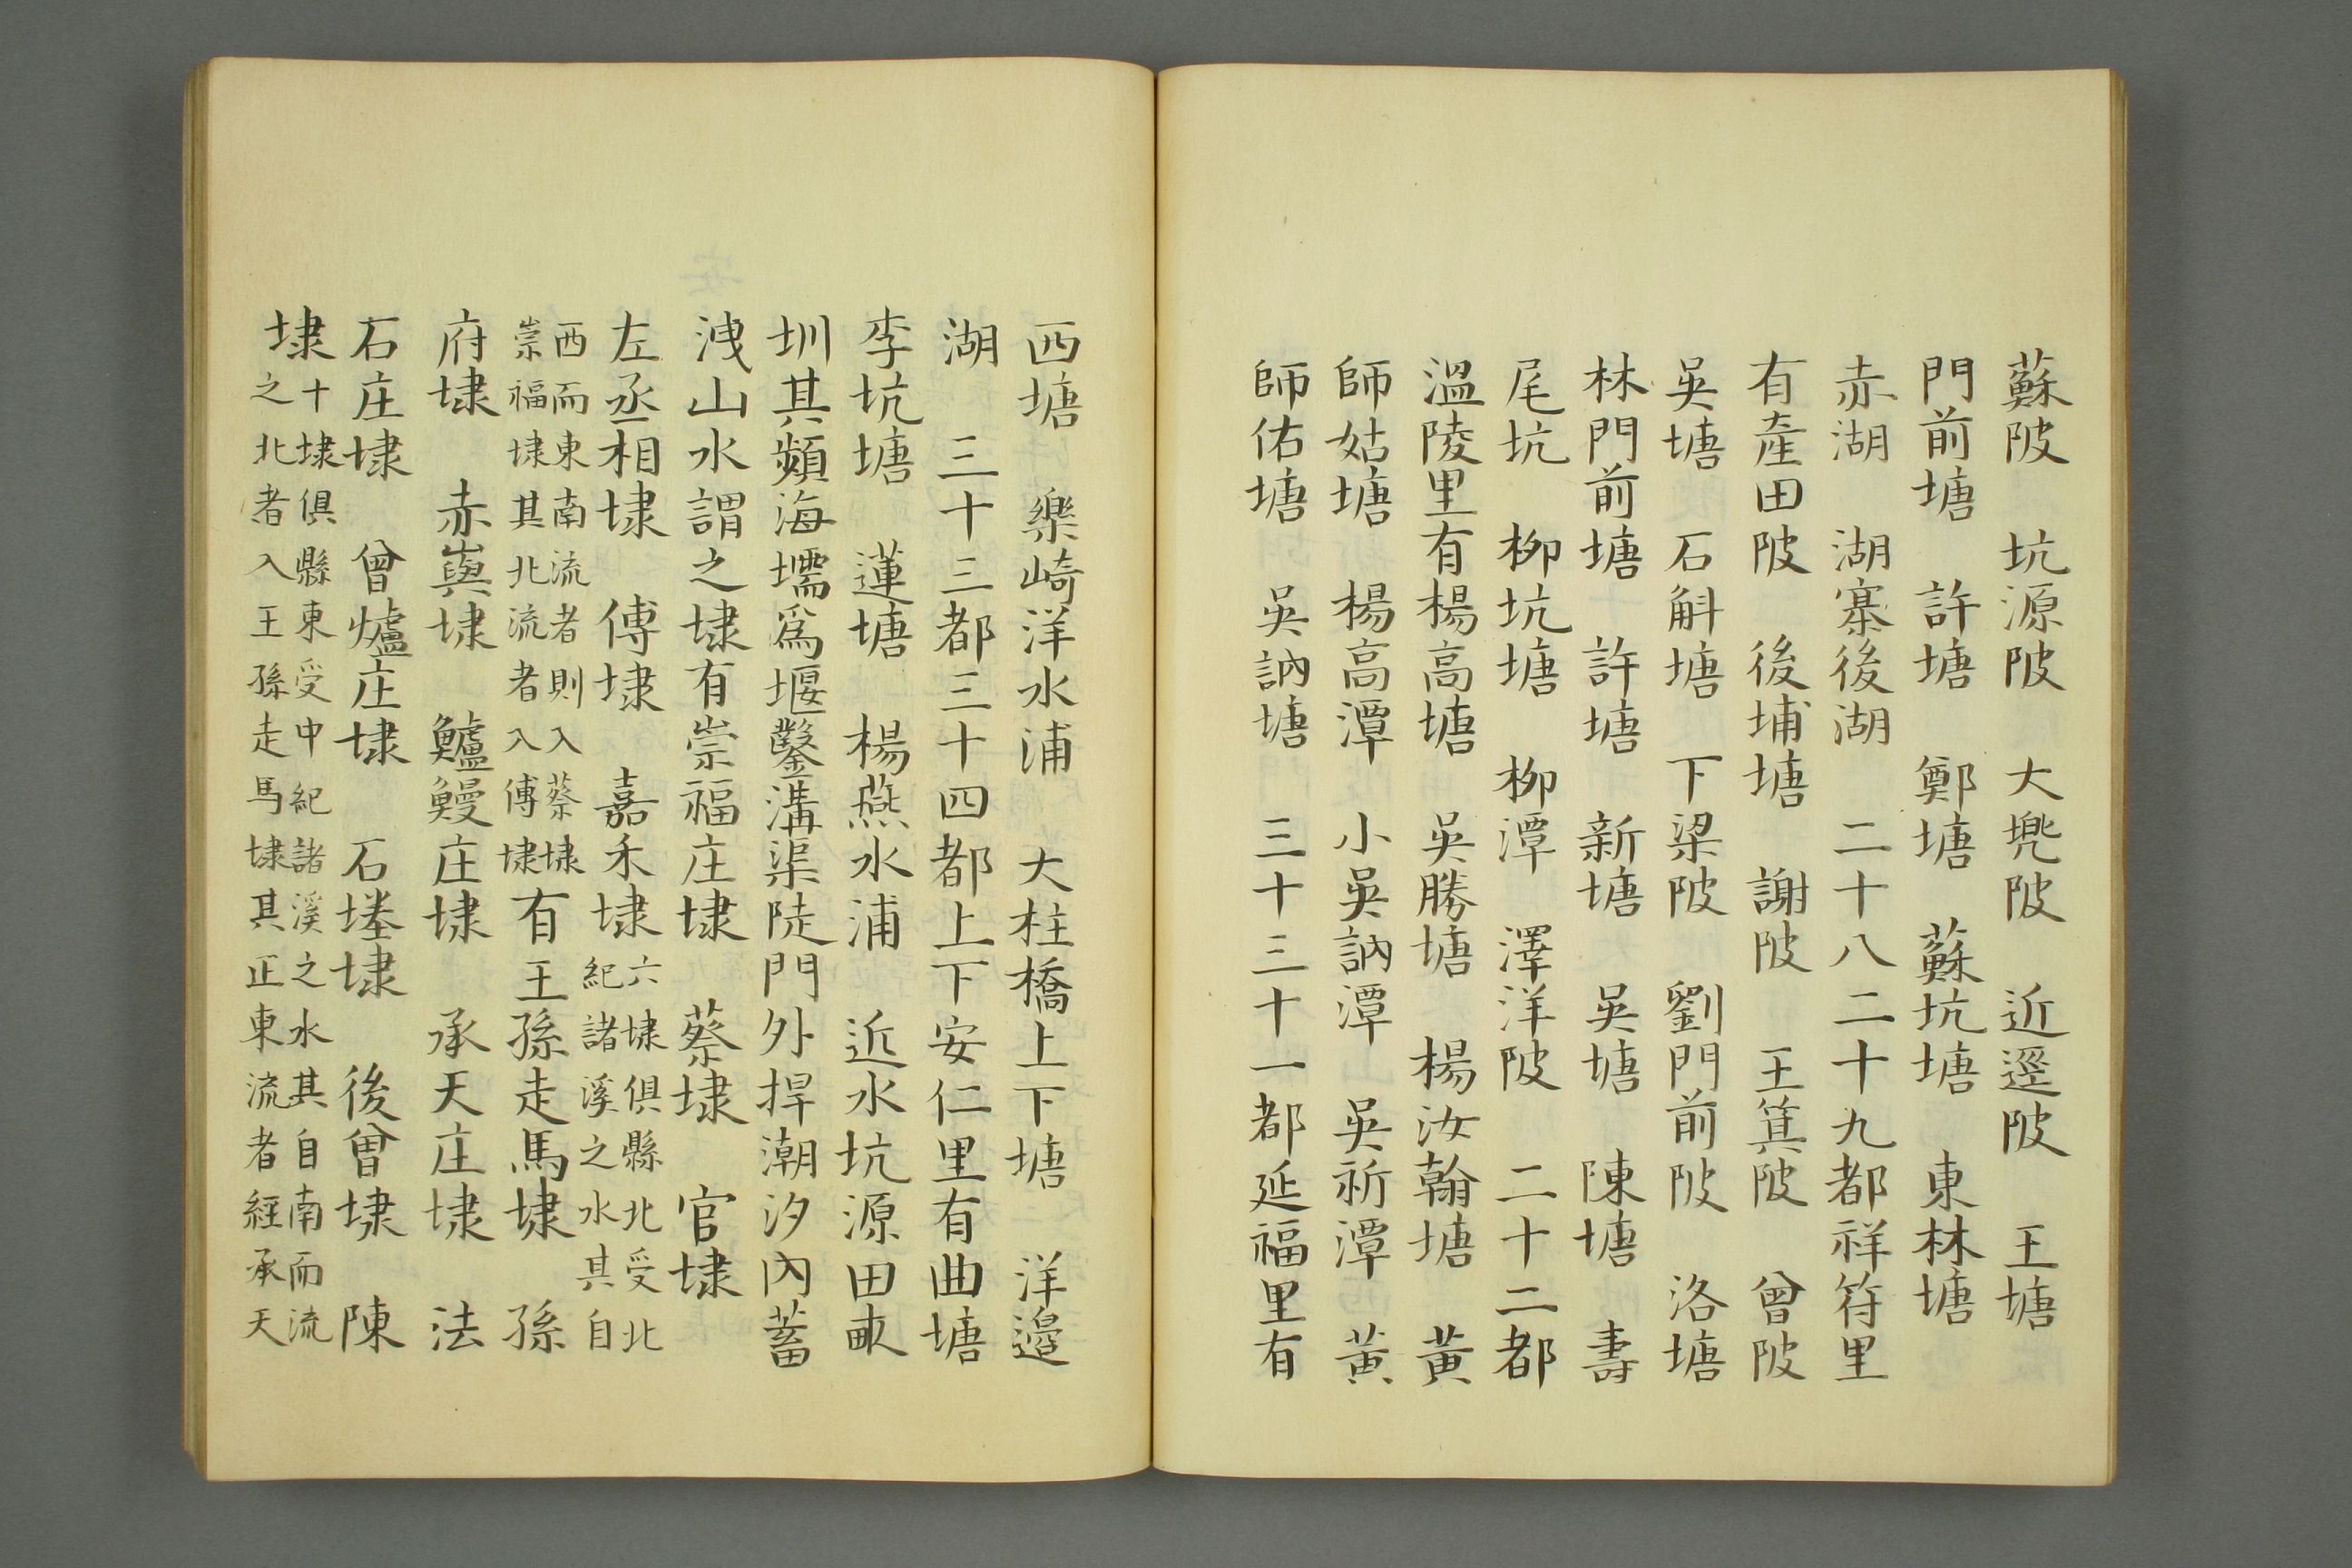 蘇陂　坑源陂　大兠陂　近逕陂　王塘
門前塘　許塘　鄭塘　蘇坑塘　東林塘
赤湖　湖寨後湖　二十八二十九都祥符里
有產田陂　後埔塘　謝陂　王箕陂　曾陂
吳塘　石斛塘　下梁陂　劉門前陂　洛塘
林門前塘　許塘　新塘　吳塘　陳塘　壽
尾坑　柳坑塘　柳潭　澤洋陂　二十二都
溫陵里有楊高塘　吳勝塘　楊汝翰塘　黃
師姑塘　楊高潭　小吳訥潭　吳祈潭　黃
師佑塘　吳訥塘　三十三十一都延福里有
西塘　樂崎洋水浦　大柱橋上下塘　洋邉
湖　三十三都三十四都上下安仁里有曲塘
李坑塘　蓮塘　楊燕水浦　近水坑源田畝
圳其頻海壖爲堰鑿溝渠陡門外捍潮汐內蓄
洩山水謂之埭有崇福庄埭　蔡埭　官埭
左丞相埭　傅埭　嘉禾埭六埭俱縣北受北紀諸溪之水其自
西而東南流者則入蔡埭崇福埭其北流者入傅埭有王孫走馬埭　孫
府埭　赤㠘埭　鱸鰻庄埭　承天庄埭　法
石庄埭　曾爐庄埭　石埢埭　後曾埭　陳
埭十埭俱縣東受中紀諸溪之水其自南而流之北者入王孫走馬埭其正東流者經承天